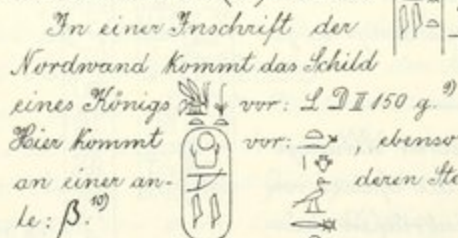 In einer Inschrift der
Nordwand kommt das Schild
eines Königs vor: L D II 150 g. 9)
Hier kommt vor: , ebenso
an einer an- deren Ste
le: β. 10)